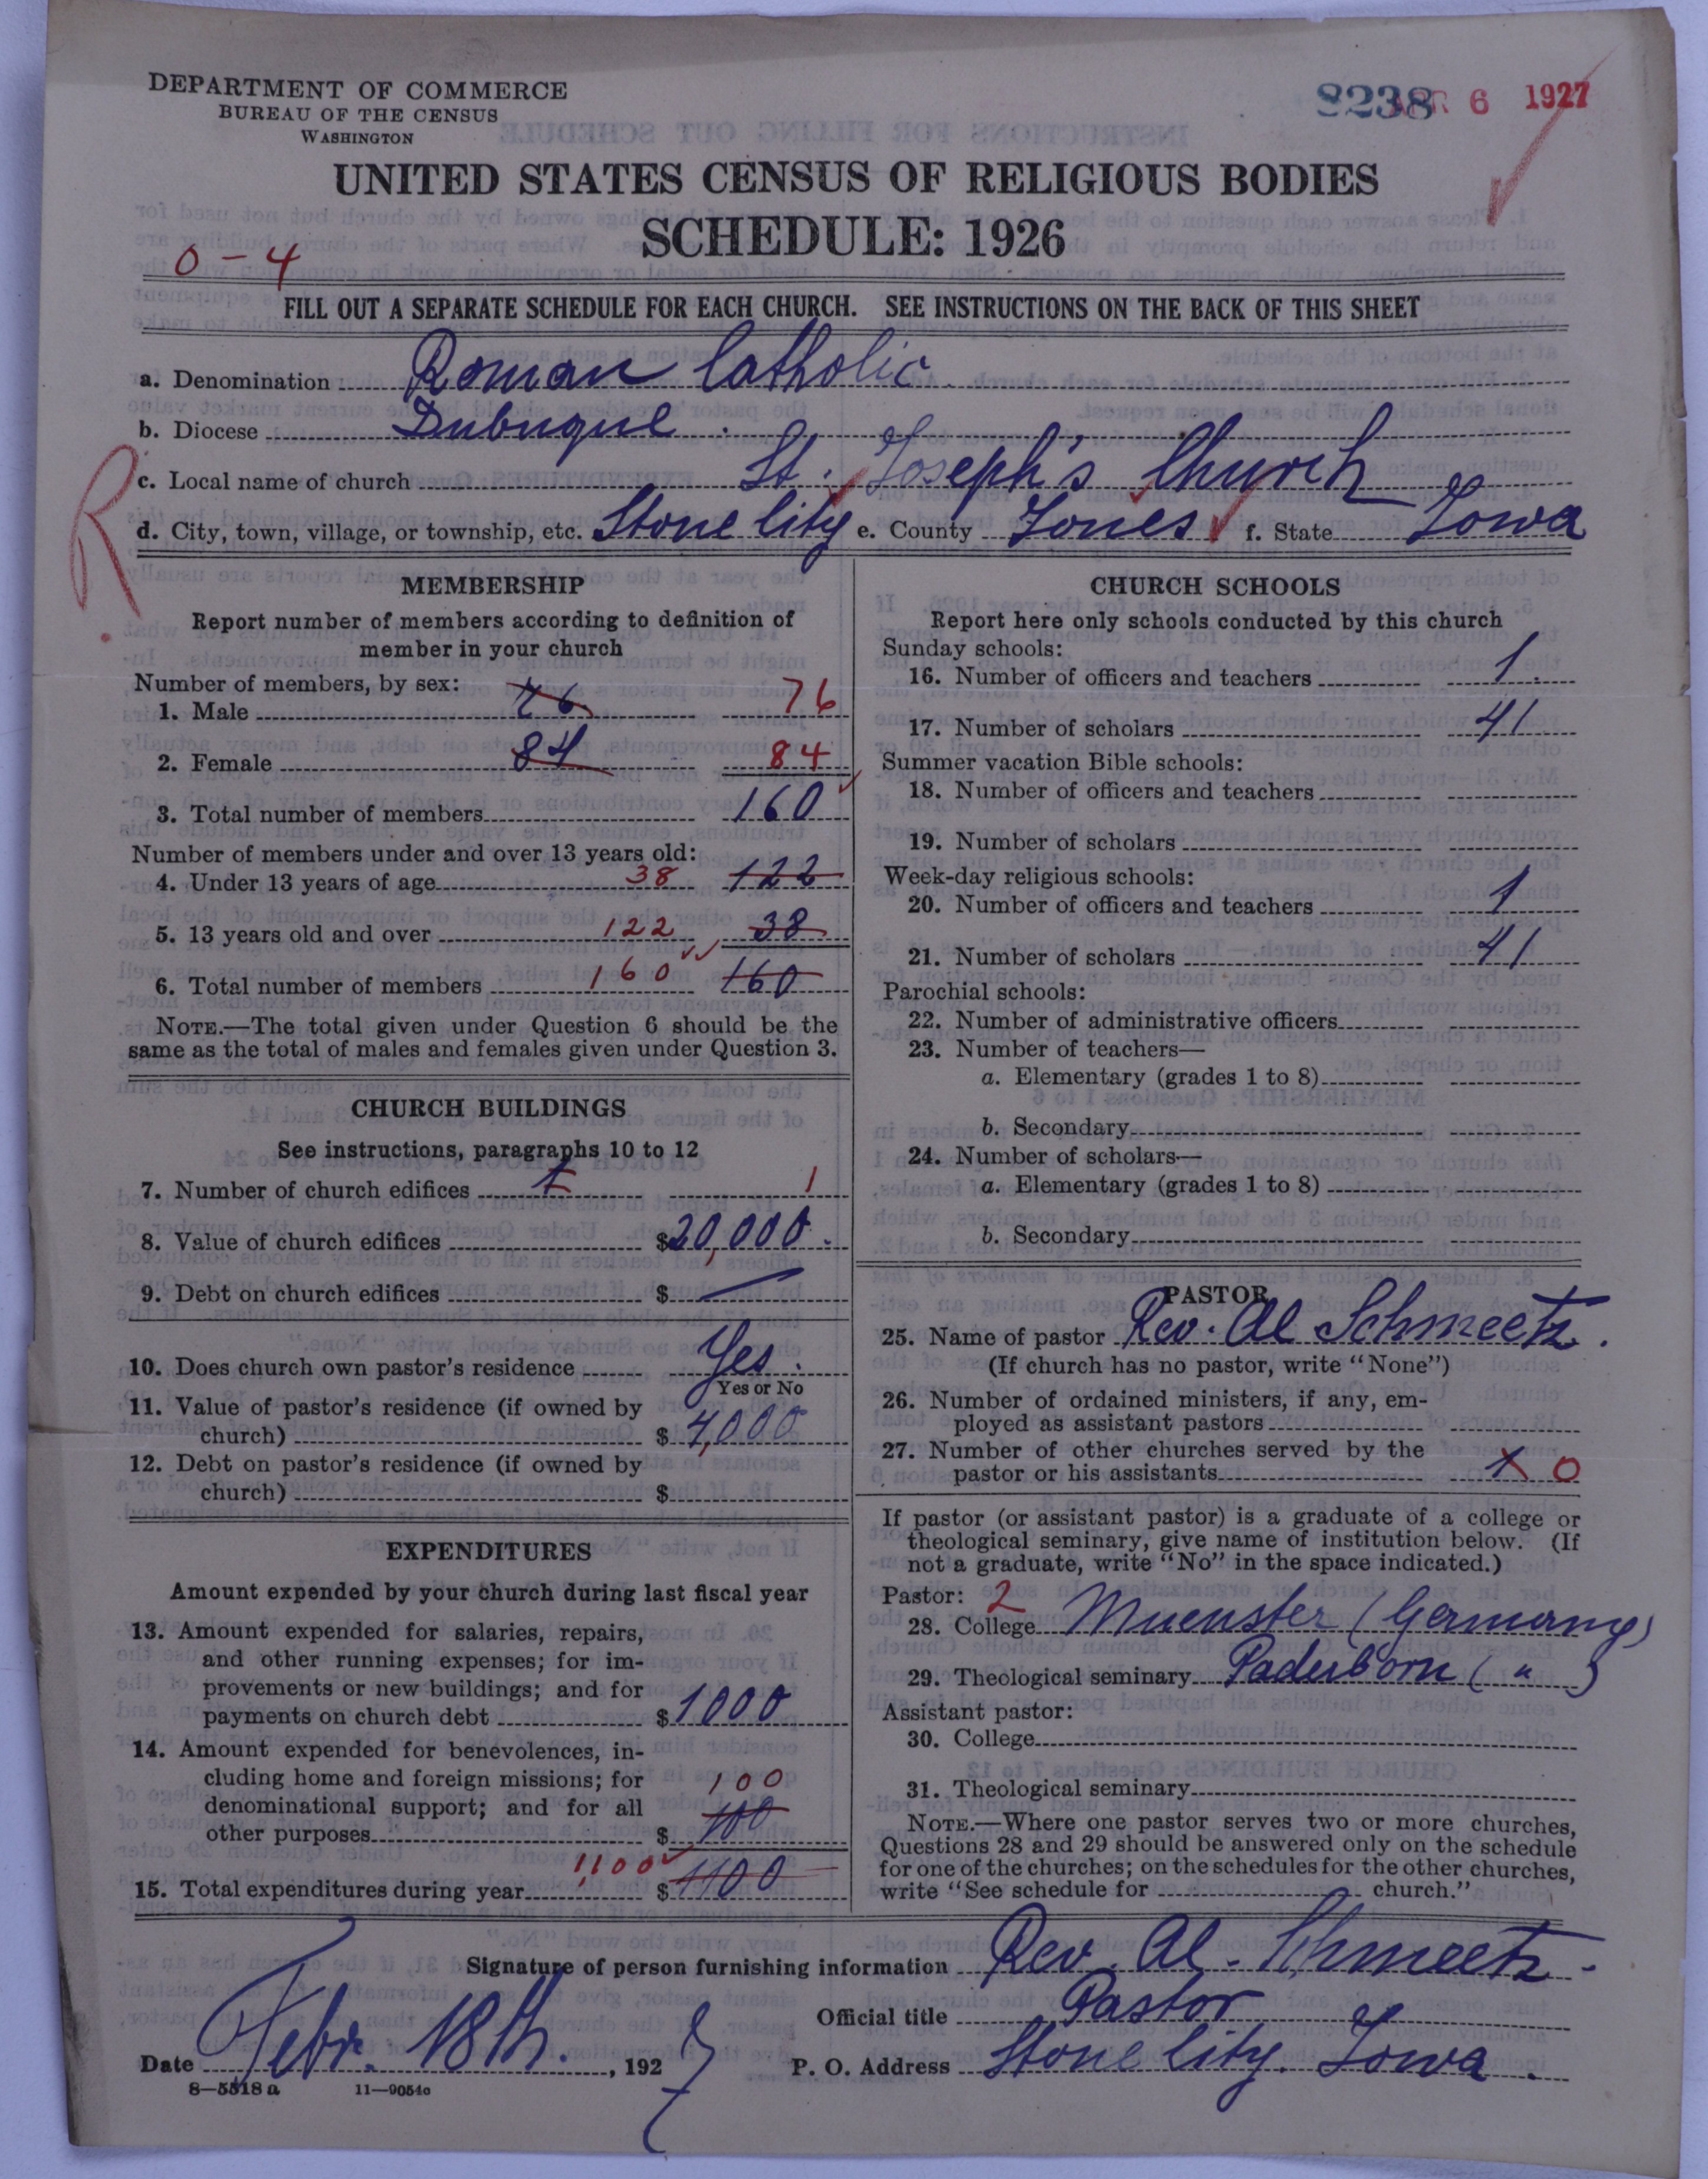 DEPARTMENT OF COMMERCE
BUREAU OF THE CENSUS
WASHINGTON
8238 APR 6 1927
UNITED STATES CENSUS OF RELIGIOUS BODIES
SCHEDULE: 1926
0-4
FILL OUT A SEPARATE SCHEDULE FOR EACH CHURCH. SEE INSTRUCTIONS ON THE BACK OF THIS SHEET
a. Denomination Roman Catholic
b. Diocese Dubuque
c. Local name of church St. Joseph's Church
R
d. City, town, village, or township, etc. Stone City e. County Jones f. State Iowa
MEMBERSHIP
Report number of members according to definition of
member in your church
Number of members, by sex:
1. Male 76 76
2. Female 84 84
3. Total number of members 160
Number of members under and over 13 years old:
4. Under 13 years of age 38 122
5. 13 years old and over 122 38
6. Total number of members 160 160
NOTE.—The total given under Question 6 should be the
same as the total of males and females given under Question 3.
CHURCH BUILDINGS
See instructions, paragraphs 10 to 12
7. Number of church edifices 1 1
8. Value of church edifices $20,000.
9. Debt on church edifices $ —
10. Does church own pastor's residence Yes.
Yes or No
11. Value of pastor's residence (if owned by
church) $ 4,000
12. Debt on pastor's residence (if owned by
church) $
EXPENDITURES
Amount expended by your church during last fiscal year
13. Amount expended for salaries, repairs,
and other running expenses; for im-
provements or new buildings; and for
payments on church debt $1000
14. Amount expended for benevolences, in-
cluding home and foreign missions; for
denominational support; and for all 100
other purposes $ 100
15. Total expenditures during year 1100 $1100
CHURCH SCHOOLS
Report here only schools conducted by this church
Sunday schools:
16. Number of officers and teachers 1.
17. Number of scholars 41
Summer vacation Bible schools:
18. Number of officers and teachers
19. Number of scholars
Week-day religious schools:
20. Number of officers and teachers 1
21. Number of scholars 41
Parochial schools:
22. Number of administrative officers
23. Number of teachers—
a. Elementary (grades 1 to 8)
b. Secondary
24. Number of scholars—
a. Elementary (grades 1 to 8)
b. Secondary
PASTOR
25. Name of pastor Rev. Al Schmeetz.
(If church has no pastor, write "None")
26. Number of ordained ministers, if any, em-
ployed as assistant pastors
27. Number of other churches served by the
pastor or his assistants 1 0
If pastor (or assistant pastor) is a graduate of a college or
theological seminary, give name of institution below. (If
not a graduate, write "No" in the space indicated.)
Pastor: 2
28. College Muenster (Germany)
29. Theological seminary Paderborn ( " )
Assistant pastor:
30. College
31. Theological seminary
NOTE.—Where one pastor serves two or more churches,
Questions 28 and 29 should be answered only on the schedule
for one of the churches; on the schedules for the other churches,
write "See schedule for church."
Signature of person furnishing information Rev. Al. Schmeetz.
Official title Pastor
Date Febr. 18th. , 1927 P. O. Address Stone City. Iowa.
8—5518 a 11—9054c